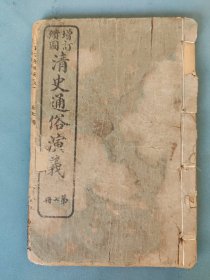 增訂
繪圖
清史通俗演義
第 冊